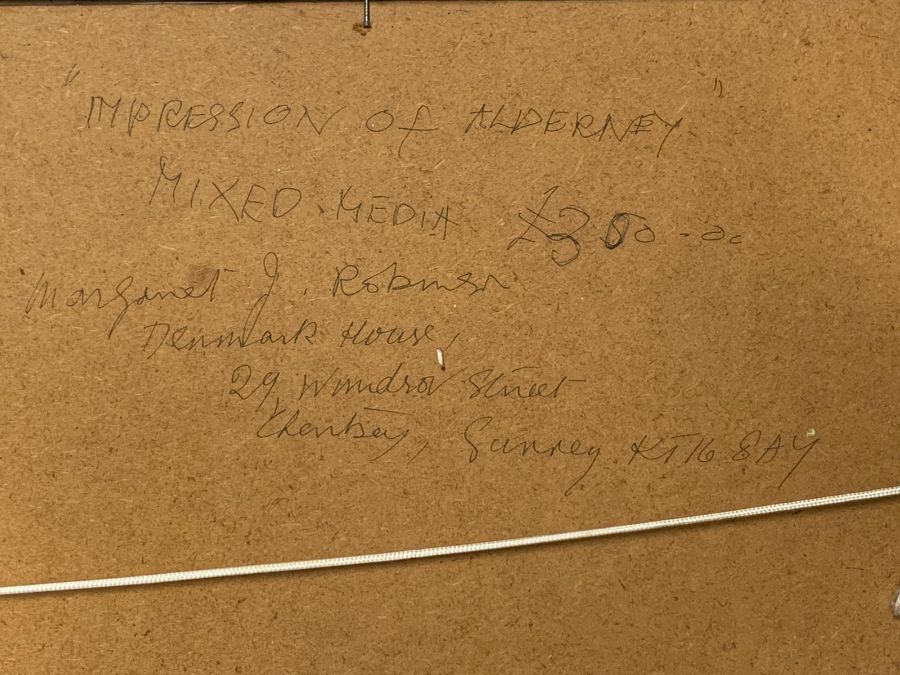 "IMPRESSION Of ALDERNEY"
MIXED MEDIA £350-00
Margaret J. Robinson
Denmark House,
29 Windsor Street
Chertsey, Surrey KT16 8AY